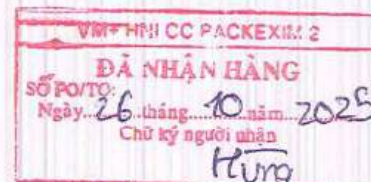 VM+ HNI CC PACKEXIM 2
ĐÃ NHẬN HÀNG
SỐ PO/TO:
Ngày 26 tháng 10 năm 2025
Chữ ký người nhận
Hưng